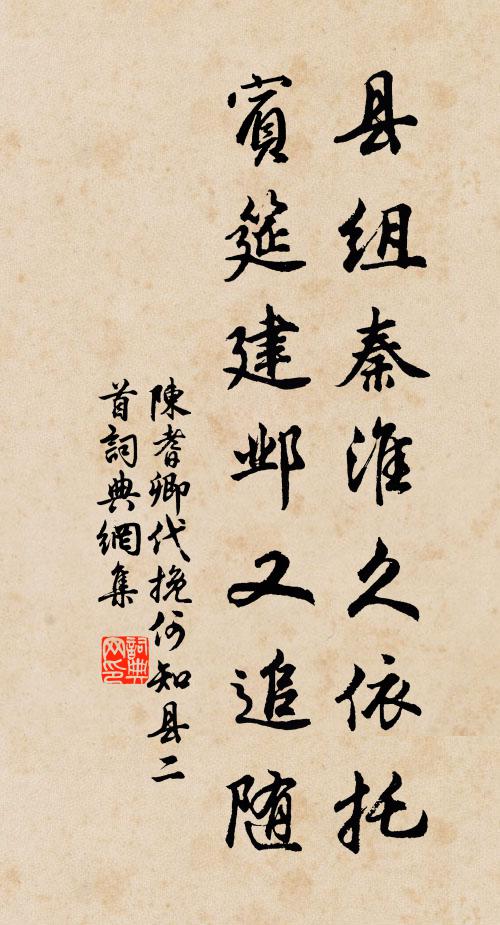 县组秦淮久依托
宾筵建邺又追随
陳耆卿代挽何知县二
首詞典網集
詞典
网印